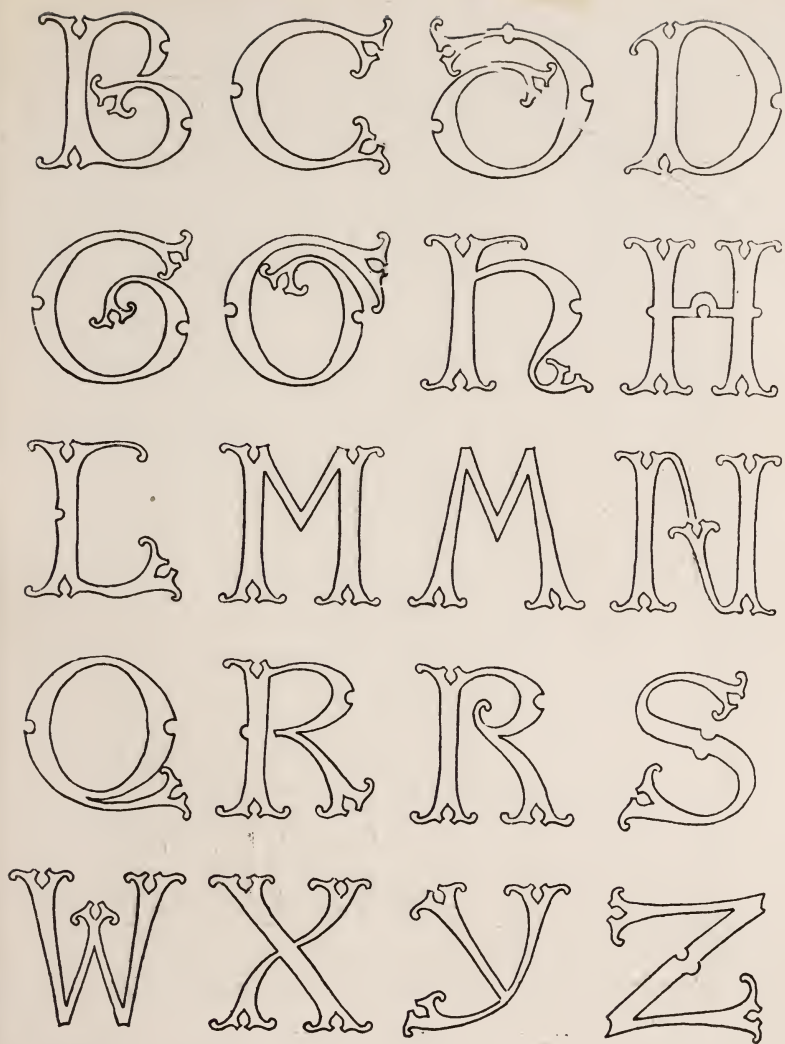 B C D D
G G H H
L M M N
Q R R S
W X Y Z